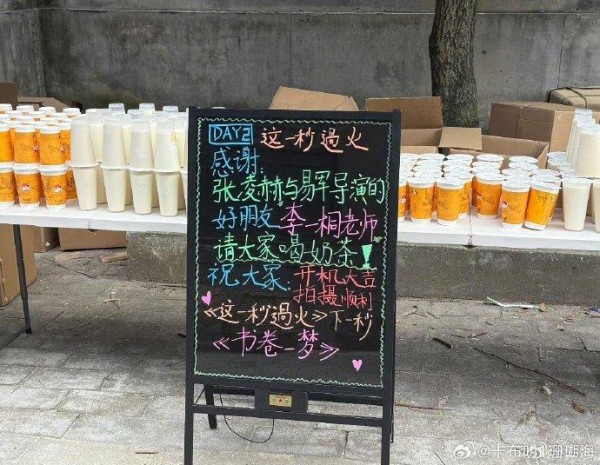 DAY2 这一秒過火
感谢:
张凌赫与易军导演的
好朋友李一桐老师
请大家喝奶茶!
祝大家:开机大吉
拍摄顺利
《这一秒過火》下一秒
《书卷一梦》
@卡布叻_珊瑚海